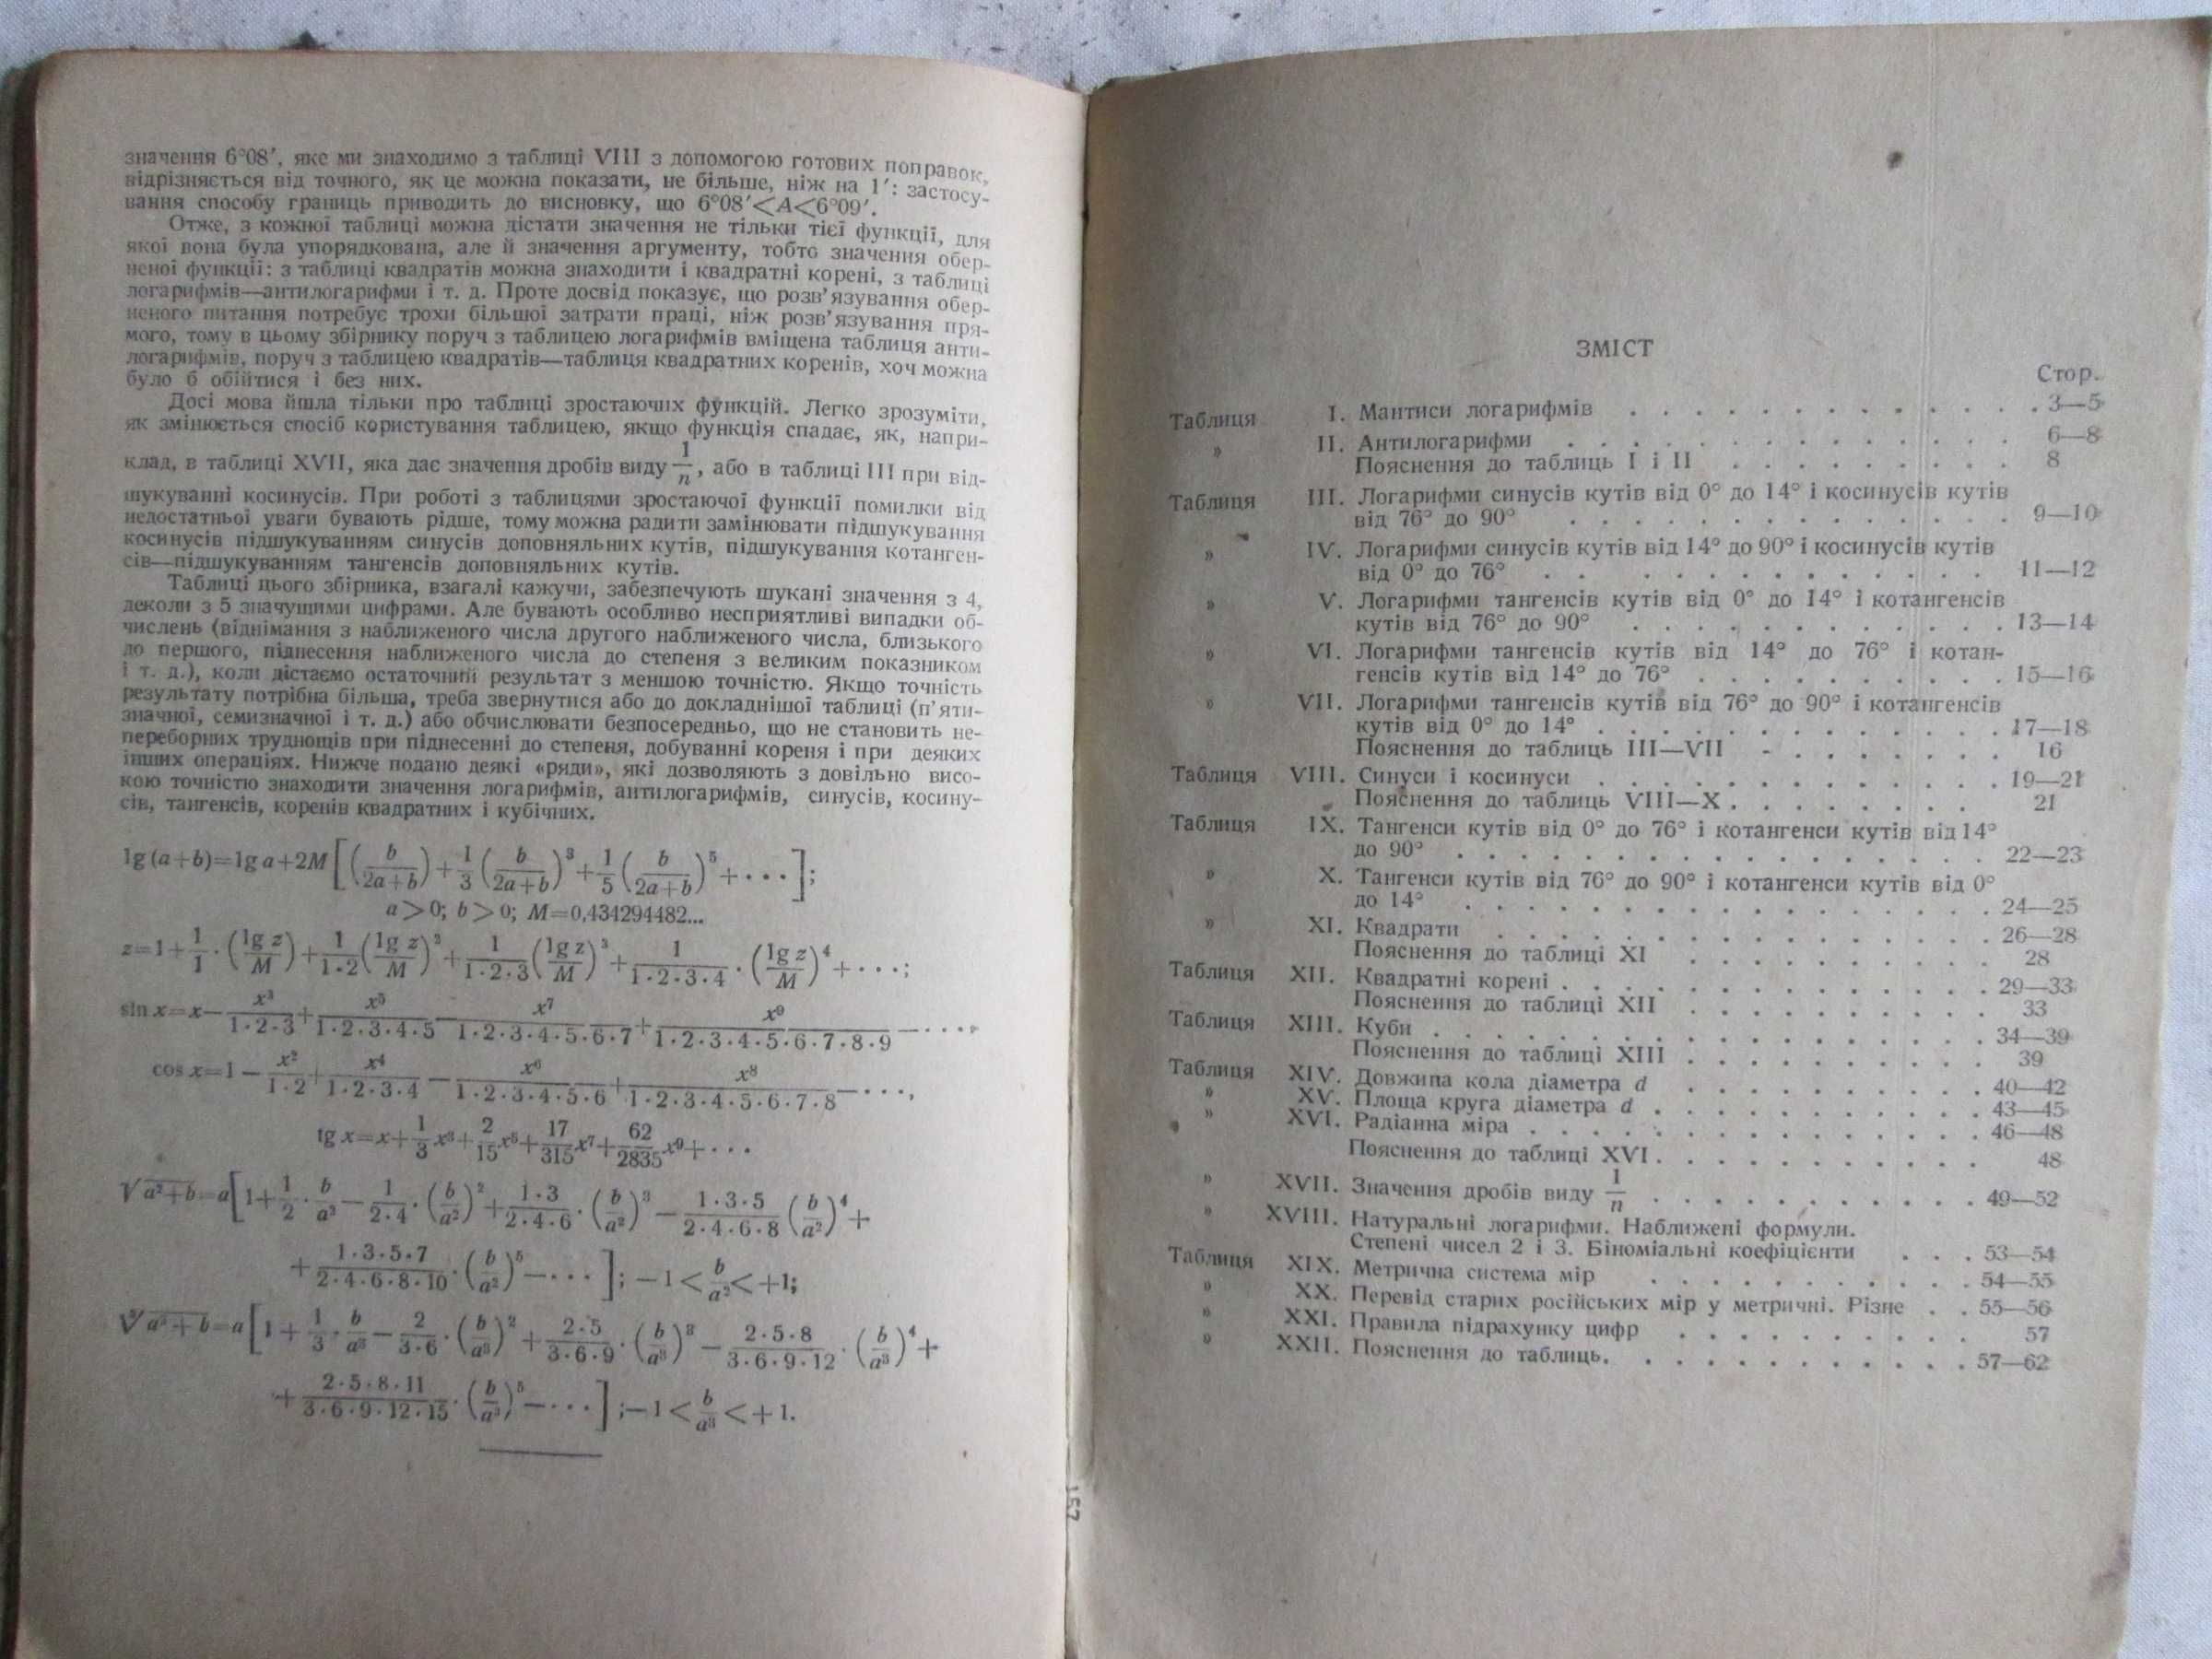 значення 6°08′, яке ми знаходимо з таблиці VIII з допомогою готових поправок,
відрізняється від точного, як це можна показати, не більше, ніж на 1′: застосу-
вання способу границь приводить до висновку, що 6°08′<A<6°09′.
Отже, з кожної таблиці можна дістати значення не тільки тієї функції, для
якої вона була упорядкована, але й значення аргументу, тобто значення обер-
неної функції: з таблиці квадратів можна знаходити і квадратні корені, з таблиці
логарифмів—антилогарифми і т. д. Проте досвід показує, що розв'язування обер-
неного питання потребує трохи більшої затрати праці, ніж розв'язування пря-
мого, тому в цьому збірнику поруч з таблицею логарифмів вміщена таблиця анти-
логарифмів, поруч з таблицею квадратів—таблиця квадратних коренів, хоч можна
було б обійтися і без них.
Досі мова йшла тільки про таблиці зростаючих функцій. Легко зрозуміти,
як змінюється спосіб користування таблицею, якщо функція спадає, як, напри-
клад, в таблиці XVII, яка дає значення дробів виду 1/n, або в таблиці III при від-
шукуванні косинусів. При роботі з таблицями зростаючої функції помилки від
недостатньої уваги бувають рідше, тому можна радити замінювати підшукування
косинусів підшукуванням синусів доповняльних кутів, підшукування котанген-
сів—підшукуванням тангенсів доповняльних кутів.
Таблиці цього збірника, взагалі кажучи, забезпечують шукані значення з 4,
деколи з 5 значущими цифрами. Але бувають особливо несприятливі випадки об-
числень (віднімання з наближеного числа другого наближеного числа, близького
до першого, піднесення наближеного числа до степеня з великим показником
і т. д.), коли дістаємо остаточний результат з меншою точністю. Якщо точність
результату потрібна більша, треба звернутися або до докладнішої таблиці (п'яти-
значної, семизначної і т. д.) або обчислювати безпосередньо, що не становить не-
переборних труднощів при піднесенні до степеня, добуванні кореня і при деяких
інших операціях. Нижче подано деякі «ряди», які дозволяють з довільно висо-
кою точністю знаходити значення логарифмів, антилогарифмів, синусів, косину-
сів, тангенсів, коренів квадратних і кубічних.
lg (a+b)=lg a+2M[(b/(2a+b))+1/3(b/(2a+b))³+1/5(b/(2a+b))⁵+···];
a>0; b>0; M=0,434294482...
z=1+1/1·(lg z/M)+1/(1·2)(lg z/M)²+1/(1·2·3)(lg z/M)³+1/(1·2·3·4)·(lg z/M)⁴+···;
sin x=x−x³/(1·2·3)+x⁵/(1·2·3·4·5)−x⁷/(1·2·3·4·5·6·7)+x⁹/(1·2·3·4·5·6·7·8·9)−····,
cos x=1−x²/(1·2)+x⁴/(1·2·3·4)−x⁶/(1·2·3·4·5·6)+x⁸/(1·2·3·4·5·6·7·8)−···,
tg x=x+1/3x³+2/15x⁵+17/315x⁷+62/2835x⁹+···
√(a²+b)=a[1+1/2·b/a²−1/(2·4)·(b/a²)²+(1·3)/(2·4·6)·(b/a²)³−(1·3·5)/(2·4·6·8)(b/a²)⁴+
+(1·3·5·7)/(2·4·6·8·10)·(b/a²)⁵−···]; −1<b/a²<+1;
∛(a³+b)=a[1+1/3·b/a³−2/(3·6)·(b/a³)²+(2·5)/(3·6·9)·(b/a³)³−(2·5·8)/(3·6·9·12)·(b/a³)⁴+
+(2·5·8·11)/(3·6·9·12·15)·(b/a³)⁵−···];−1<b/a³<+1.
157
ЗМІСТ
Стор.
Таблиця I. Мантиси логарифмів . . . . 3—5
» II. Антилогарифми . . . . 6—8
Пояснення до таблиць I і II . . . . 8
Таблиця III. Логарифми синусів кутів від 0° до 14° і косинусів кутів
від 76° до 90° . . . . 9—10
» IV. Логарифми синусів кутів від 14° до 90° і косинусів кутів
від 0° до 76° . . . . 11—12
» V. Логарифми тангенсів кутів від 0° до 14° і котангенсів
кутів від 76° до 90° . . . . 13—14
» VI. Логарифми тангенсів кутів від 14° до 76° і котан-
генсів кутів від 14° до 76° . . . . 15—16
» VII. Логарифми тангенсів кутів від 76° до 90° і котангенсів
кутів від 0° до 14° . . . . 17—18
Пояснення до таблиць III—VII . . . . 16
Таблиця VIII. Синуси і косинуси . . . . 19—21
Пояснення до таблиць VIII—X . . . . 21
Таблиця IX. Тангенси кутів від 0° до 76° і котангенси кутів від 14°
до 90° . . . . 22—23
» X. Тангенси кутів від 76° до 90° і котангенси кутів від 0°
до 14° . . . . 24—25
» XI. Квадрати . . . . 26—28
Пояснення до таблиці XI . . . . 28
Таблиця XII. Квадратні корені . . . . 29—33
Пояснення до таблиці XII . . . . 33
Таблиця XIII. Куби . . . . 34—39
Пояснення до таблиці XIII . . . . 39
Таблиця XIV. Довжина кола діаметра d . . . . 40—42
» XV. Площа круга діаметра d . . . . 43—45
» XVI. Радіанна міра . . . . 46—48
Пояснення до таблиці XVI . . . . 48
» XVII. Значення дробів виду 1/n . . . . 49—52
» XVIII. Натуральні логарифми. Наближені формули.
Степені чисел 2 і 3. Біноміальні коефіцієнти . . . 53—54
Таблиця XIX. Метрична система мір . . . . 54—55
» XX. Перевід старих російських мір у метричні. Різне . . 55—56
» XXI. Правила підрахунку цифр . . . . 57
» XXII. Пояснення до таблиць. . . . . 57—62